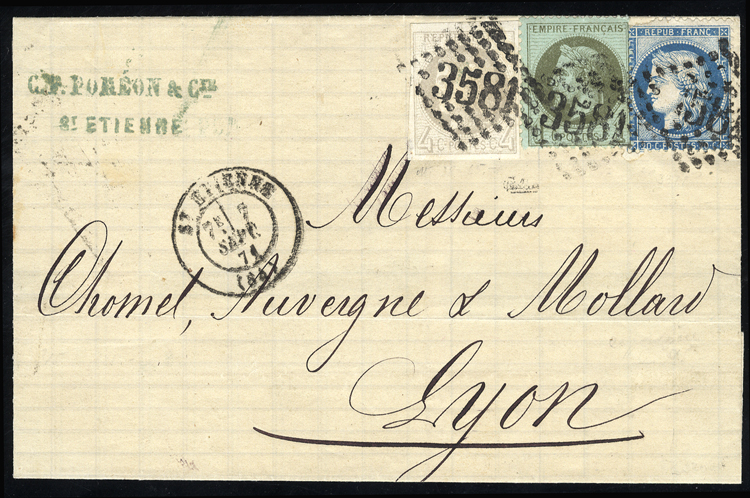 CH. POMÉON & CIE
ST ETIENNE
RÉPUB
4 CENTS 4
3581
EMPIRE FRANÇAIS
3581
REPUB. FRANC.
20 CENT. POSTES
ST ETIENNE
7E / 7
SEPT.
71
(84)
Messieurs
Chomel, Auvergne & Mollard
Lyon